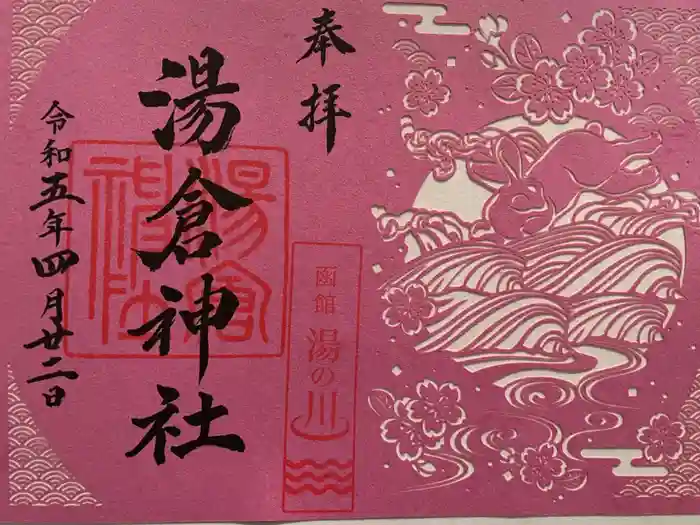 奉拝
湯倉神社
令和五年四月廿二日
湯倉神社
函館
湯の川